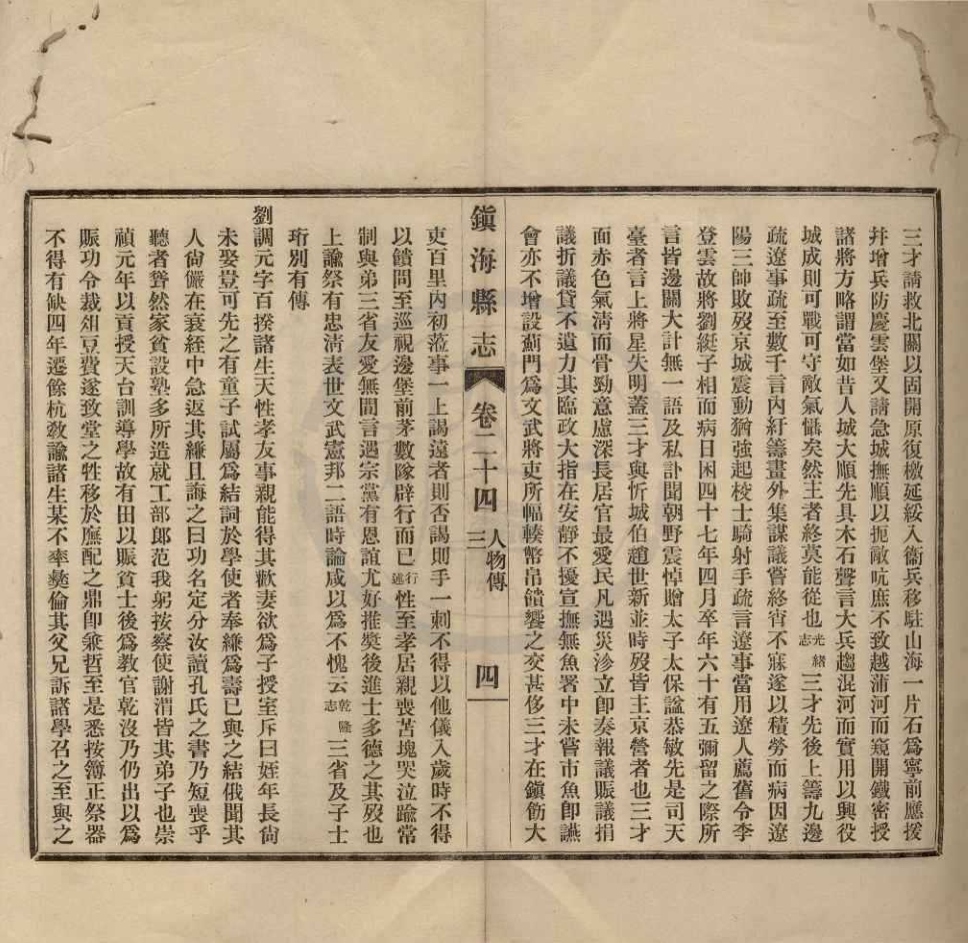 三才請救北關以固開原復檄延綏入衞兵移駐山海一片石爲寧前應援
幷增兵防慶雲堡又請急城撫順以扼敵吭庶不致越蒲河而窺開鐵密授
諸將方略謂當如昔人城大順先具木石聲言大兵趨混河而實用以興役
城成則可戰可守敵氣懾矣然主者終莫能從也光緒志三才先後上籌九邊
疏遼事疏至數千言內紆籌畫外集謀議嘗終宵不寐遂以積勞而病因遼
陽三帥敗歿京城震動猶強起校士騎射手疏言遼事當用遼人薦舊令李
登雲故將劉綎子相而病日困四十七年四月卒年六十有五彌留之際所
言皆邊關大計無一語及私訃聞朝野震悼贈太子太保諡恭敏先是司天
臺者言上將星失明蓋三才與忻城伯趙世新並時歿皆主京營者也三才
面赤色氣淸而骨勁意慮深長居官最愛民凡遇災沴立卽奏報議賑議捐
議折議貸不遺力其臨政大指在安靜不擾宣撫無魚署中未嘗市魚卽讌
會亦不增設薊門爲文武將吏所輻輳幣帛饋饗之交甚侈三才在鎭飭大
鎭海縣志 卷二十四 人物傳三 四
吏百里內初蒞事一上謁遠者則否謁則手一刺不得以他儀入歲時不得
以饋問至巡視邊堡前茅數隊辟行而已行述性至孝居親喪苫塊哭泣踰常
制與弟三省友愛無間言遇宗黨有恩誼尤好推奬後進士多德之其歿也
上諭祭有忠淸表世文武憲邦二語時論咸以爲不愧云乾隆志三省及子士
珩別有傳
劉調元字百揆諸生天性孝友事親能得其歡妻欲爲子授室斥曰姪年長尙
未娶豈可先之有童子試屬爲結詞於學使者奉縑爲壽已與之結俄聞其
人尙儼在衰絰中急返其縑且誨之曰功名定分汝讀孔氏之書乃短喪乎
聽者聳然家貧設塾多所造就工部郎范我躬按察使謝渭皆其弟子也崇
禎元年以貢授天台訓導學故有田以賑貧士後爲教官乾沒乃仍出以爲
賑功令裁俎豆費遂致堂之牲移於廡配之鼎卽兼哲至是悉按簿正祭器
不得有缺四年遷餘杭敎諭諸生某不率彝倫其父兄訴諸學召之至與之